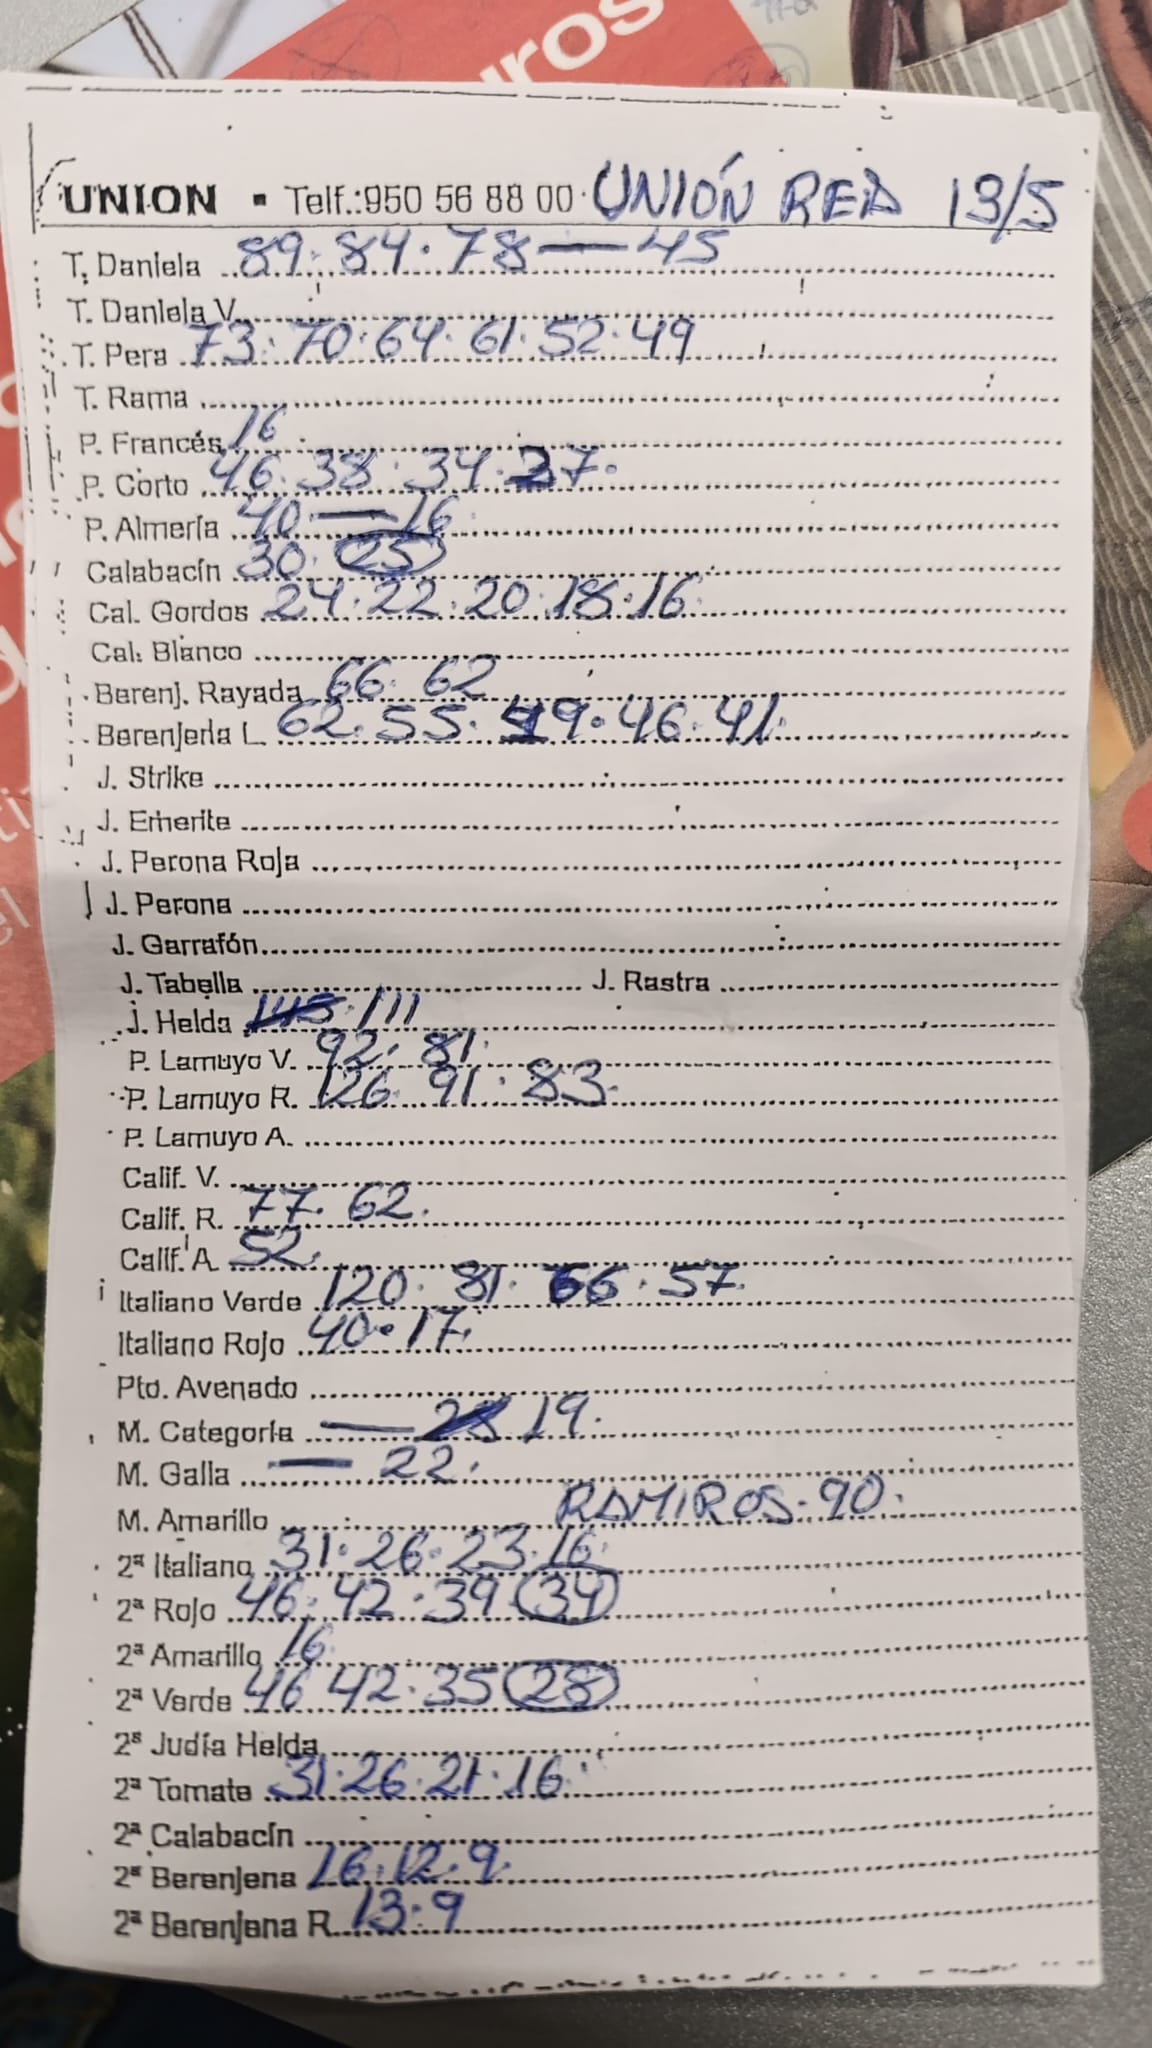 uros
UNION ▪ Telf.:950 56 88 00 · UNIÓN RED 13/5
T. Daniela 89·84·78—45
T. Daniela V.
T. Pera 73·70·64·61·52·49
T. Rama
P. Francés 16
P. Corto 46·38·34·27·
P. Almería 40—16
Calabacín 30·(25)
Cal. Gordos 24·22·20·18·16·
Cal. Blanco
Berenj. Rayada 66·62
Berenjena L 62·55·49·46·41·
J. Strike
J. Emerite
J. Perona Roja
J. Perona
J. Garrafón
J. Tabella J. Rastra
J. Helda 111
P. Lamuyo V. 92·81·
P. Lamuyo R. 126·91·83·
P. Lamuyo A.
Calif. V.
Calif. R. 77·62·
Calif. A. 52·
Italiano Verde 120·81·66·57
Italiano Rojo 40·17·
Pto. Avenado
M. Categoría — 19·
M. Galia — 22·
M. Amarillo RAMIROS-90·
2ª Italiano 31·26·23·16·
2ª Rojo 46·42·39 (34)
2ª Amarillo 16·
2ª Verde 46 42·35 (28)
2ª Judía Helda
2ª Tomate 31·26·21·16·
2ª Calabacín
2ª Berenjena 16·12·9·
2ª Berenjena R. 13·9